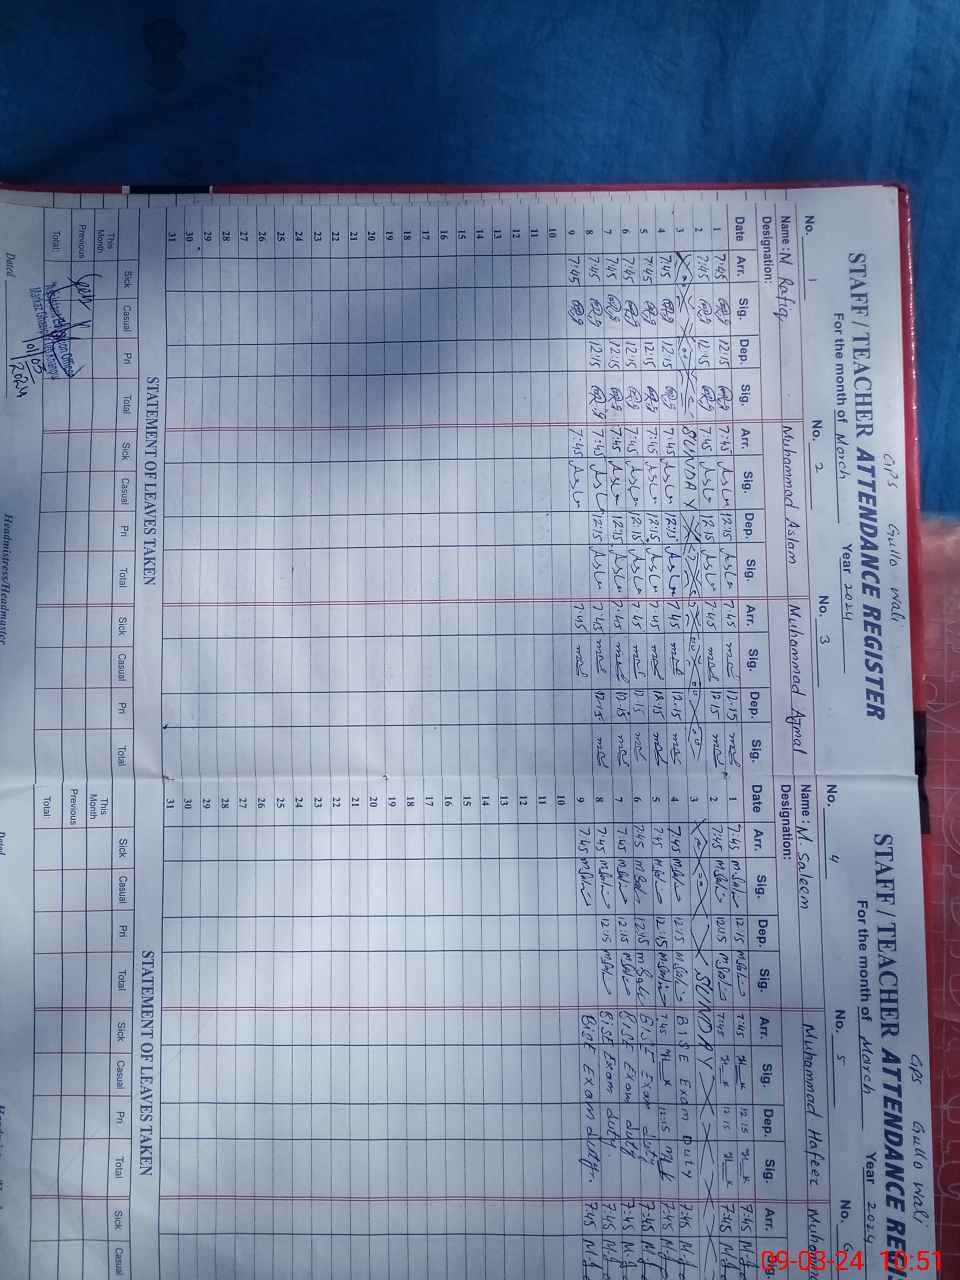 GPS Gullo Wali
STAFF / TEACHER ATTENDANCE REGISTER
For the month of March Year 2024
No. 1 No. 2 No. 3
Name: M Rafiq Muhammad Aslam Muhammad Ajmal
Designation:
Date Arr. Sig. Dep. Sig. Arr. Sig. Dep. Sig. Arr. Sig. Dep. Sig.
1 7:45 12:15 7:45 Aslam 12:15 Aslam 7:45 12:15
2 7:45 12:15 7:45 Aslam 12:15 Aslam 7:45 12:15
3 SUNDAY
4 7:45 12:15 7:45 Aslam 12:15 Aslam 7:45 12:15
5 7:45 12:15 7:45 Aslam 12:15 Aslam 7:45 12:15
6 7:45 12:15 7:45 Aslam 12:15 Aslam 7:45 12:15
7 7:45 12:15 7:45 Aslam 12:15 Aslam 7:45 12:15
8 7:45 12:15 7:45 Aslam 12:15 Aslam 7:45 12:15
9 7:45 7:45 Aslam 7:45
10
11
12
13
14
15
16
17
18
19
20
21
22
23
24
25
26
27
28
29
30
31
STATEMENT OF LEAVES TAKEN
Sick Casual Pri Total Sick Casual Pri Total Sick Casual Pri Total
This Month
Previous
Total:
01/03/2024
Dated Headmistress/Headmaster
GPS Gullo Wali
STAFF / TEACHER ATTENDANCE REGI
For the month of March Year 2024
No. 4 No. 5 No. 6
Name: M. Saleem Muhammad Hafeez Muham
Designation:
Date Arr. Sig. Dep. Sig. Arr. Sig. Dep. Sig. Arr. Sig.
1 7:45 M.Saleem 12:15 M.Saleem 7:45 12:15 7:45
2 7:45 M.Saleem 12:15 M.Saleem 7:45 12:15 7:45
3 SUNDAY
4 7:45 M.Saleem 12:15 M.Saleem BISE Exam Duty 7:45
5 7:45 M.Saleem 12:15 M.Saleem 7:45 12:15 7:45
6 7:45 M.Saleem 12:15 M.Saleem BISE Exam duty 7:45
7 7:45 M.Saleem 12:15 M.Saleem BISE Exam duty 7:45
8 7:45 M.Saleem 12:15 M.Saleem BISE Exam duty. 7:45
9 7:45 M.Saleem BISE Exam duty. 7:45
10
11
12
13
14
15
16
17
18
19
20
21
22
23
24
25
26
27
28
29
30
31
STATEMENT OF LEAVES TAKEN
Sick Casual Pri Total Sick Casual Pri Total Sick Casual
This Month
Previous
Total:
Dated Headmis
09-03-24 10:51